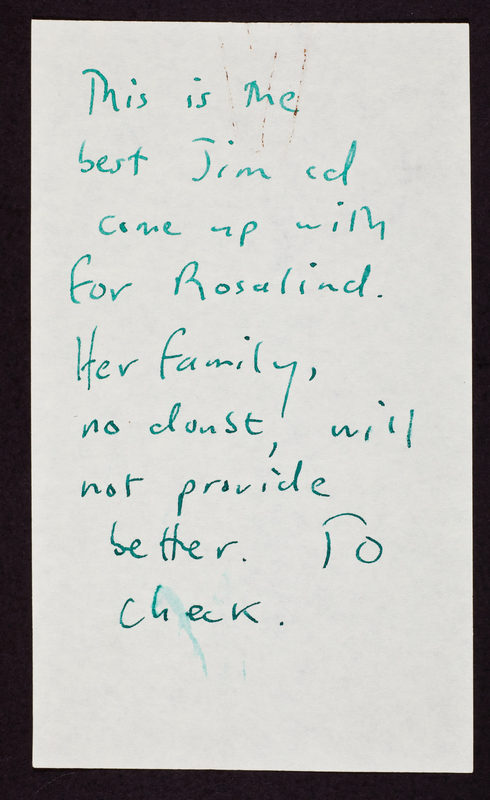 This is the
best Jim cd
come up with
for Rosalind.
Her family,
no doubt, will
not provide
better. To
check.